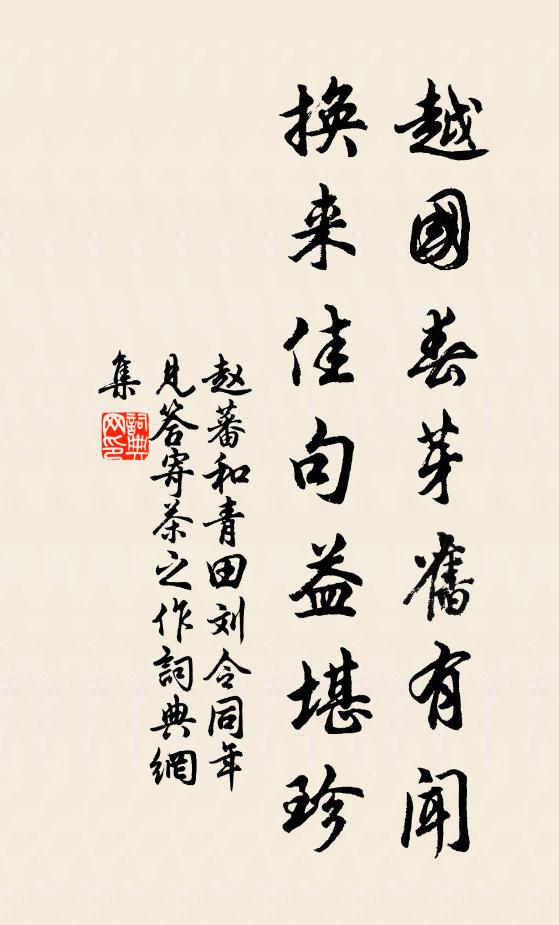 越國春芽舊有聞
换来佳句益堪珍
赵蕃和青田刘令同年
见答寄茶之作詞典網
集
詞典网印